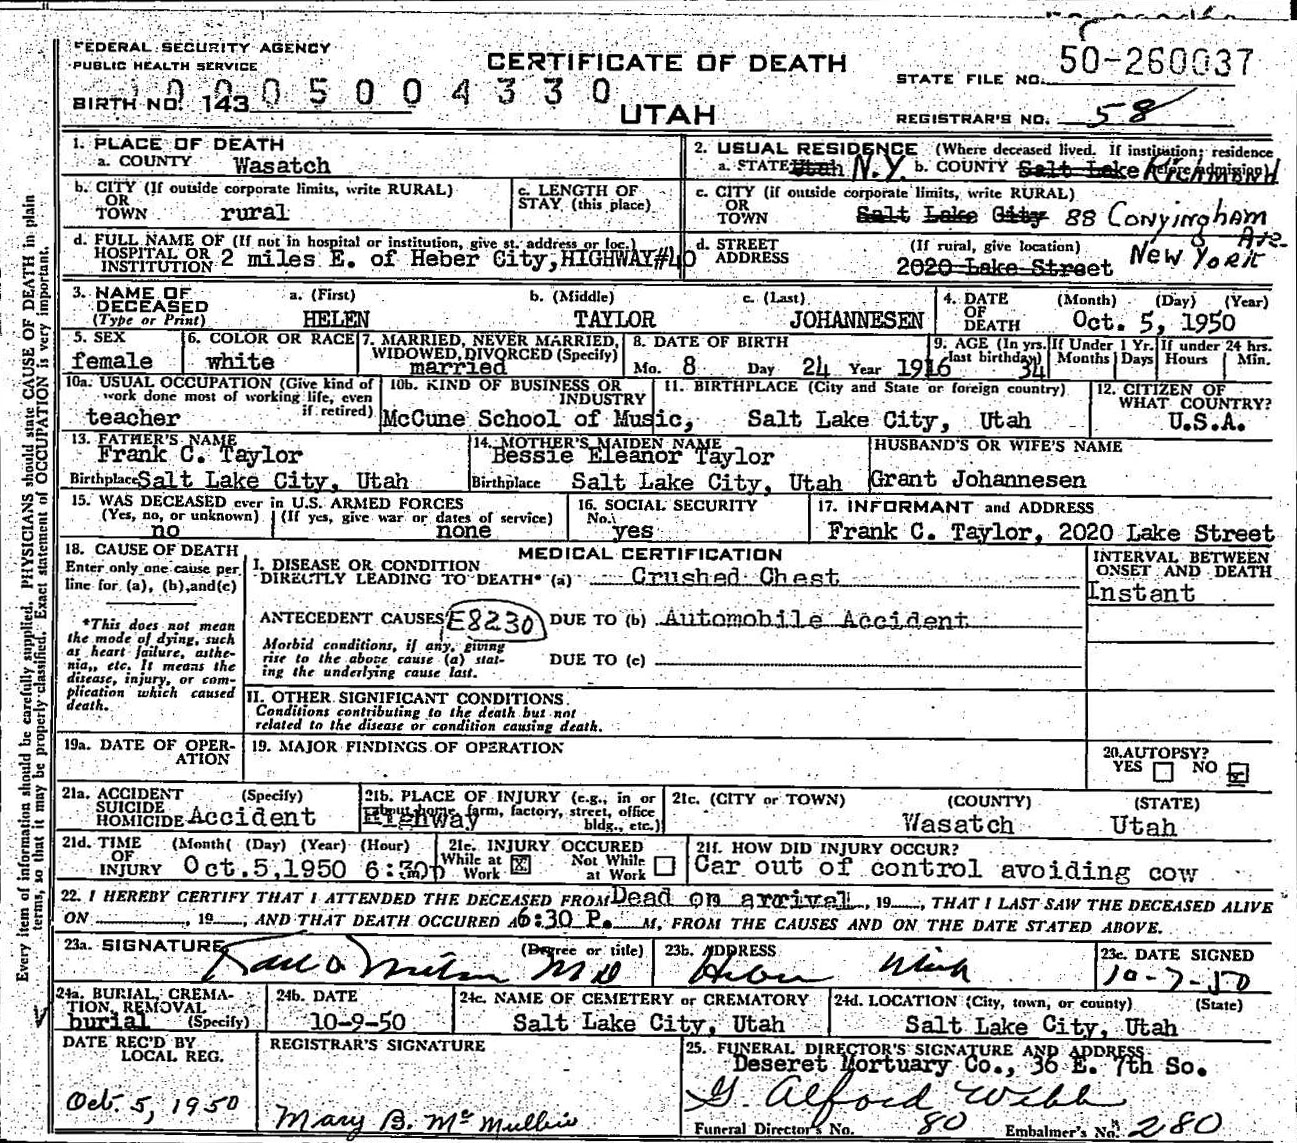 FEDERAL SECURITY AGENCY
PUBLIC HEALTH SERVICE
CERTIFICATE OF DEATH
STATE FILE NO. 50-260037
0005004330
BIRTH NO. 143
UTAH
REGISTRAR'S NO. 58
1. PLACE OF DEATH
a. COUNTY Wasatch
2. USUAL RESIDENCE (Where deceased lived. If institution; residence before admission)
a. STATE Utah N.Y. b. COUNTY Salt Lake RICHMOND
b. CITY (If outside corporate limits, write RURAL)
OR
TOWN rural
c. LENGTH OF
STAY (this place)
c. CITY (if outside corporate limits, write RURAL)
OR
TOWN Salt Lake City 88 Conyingham Ave.
d. FULL NAME OF (If not in hospital or institution, give st. address or loc.)
HOSPITAL OR
INSTITUTION 2 miles E. of Heber City, HIGHWAY #40
d. STREET (If rural, give location)
ADDRESS 2020 Lake Street New York
3. NAME OF
DECEASED
(Type or Print)
a. (First) b. (Middle) c. (Last)
HELEN TAYLOR JOHANNESEN
4. DATE (Month) (Day) (Year)
OF
DEATH Oct. 5, 1950
5. SEX
female
6. COLOR OR RACE
white
7. MARRIED, NEVER MARRIED,
WIDOWED, DIVORCED (Specify)
married
8. DATE OF BIRTH
Mo. 8 Day 24 Year 1916
9. AGE (In yrs. last birthday) 34
If Under 1 Yr. Months Days
If under 24 hrs. Hours Min.
10a. USUAL OCCUPATION (Give kind of
work done most of working life, even
if retired)
teacher
10b. KIND OF BUSINESS OR
INDUSTRY
McCune School of Music,
11. BIRTHPLACE (City and State or foreign country)
Salt Lake City, Utah
12. CITIZEN OF
WHAT COUNTRY?
U.S.A.
13. FATHER'S NAME
Frank C. Taylor
Birthplace Salt Lake City, Utah
14. MOTHER'S MAIDEN NAME
Bessie Eleanor Taylor
Birthplace Salt Lake City, Utah
HUSBAND'S OR WIFE'S NAME
Grant Johannesen
15. WAS DECEASED ever in U.S. ARMED FORCES
(Yes, no, or unknown) (If yes, give war or dates of service)
no none
16. SOCIAL SECURITY
No.
yes
17. INFORMANT and ADDRESS
Frank C. Taylor, 2020 Lake Street
18. CAUSE OF DEATH
Enter only one cause per
line for (a), (b), and (c)
*This does not mean
the mode of dying, such
as heart failure, asthe-
nia,, etc. It means the
disease, injury, or com-
plication which caused
death.
MEDICAL CERTIFICATION
INTERVAL BETWEEN
ONSET AND DEATH
I. DISEASE OR CONDITION
DIRECTLY LEADING TO DEATH* (a) Crushed Chest
Instant
ANTECEDENT CAUSES E8230 DUE TO (b) Automobile Accident
Morbid conditions, if any, giving
rise to the above cause (a) stat-
ing the underlying cause last.
DUE TO (c)
II. OTHER SIGNIFICANT CONDITIONS.
Conditions contributing to the death but not
related to the disease or condition causing death.
19a. DATE OF OPER-
ATION
19. MAJOR FINDINGS OF OPERATION
20. AUTOPSY?
YES NO
21a. ACCIDENT (Specify)
SUICIDE
HOMICIDE Accident
21b. PLACE OF INJURY (e.g., in or
about home, farm, factory, street, office
bldg., etc.)
Highway
21c. (CITY or TOWN) (COUNTY) (STATE)
Wasatch Utah
21d. TIME (Month( (Day) (Year) (Hour)
OF
INJURY Oct.5,1950 6:30p m)
21e. INJURY OCCURED
While at Work Not While at Work
21f. HOW DID INJURY OCCUR?
Car out of control avoiding cow
22. I HEREBY CERTIFY THAT I ATTENDED THE DECEASED FROM Dead on arrival, 19, THAT I LAST SAW THE DECEASED ALIVE
ON , 19, AND THAT DEATH OCCURED A 6:30 P. M, FROM THE CAUSES AND ON THE DATE STATED ABOVE.
23a. SIGNATURE (Degree or title)
MD
23b. ADDRESS
Heber Utah
23c. DATE SIGNED
10-7-50
24a. BURIAL, CREMA-
TION, REMOVAL
burial (Specify)
24b. DATE
10-9-50
24c. NAME OF CEMETERY or CREMATORY
Salt Lake City, Utah
24d. LOCATION (City, town, or county) (State)
Salt Lake City, Utah
DATE REC'D BY
LOCAL REG.
Oct. 5, 1950
REGISTRAR'S SIGNATURE
Mary B. McMullin
25. FUNERAL DIRECTOR'S SIGNATURE AND ADDRESS
Deseret Mortuary Co., 36 E. 7th So.
G. Alford Webb
Funeral Director's No. 80 Embalmer's No. 280
Every item of information should be carefully supplied. PHYSICIANS should state CAUSE OF DEATH in plain
terms, so that it may be properly classified. Exact statement of OCCUPATION is very important.